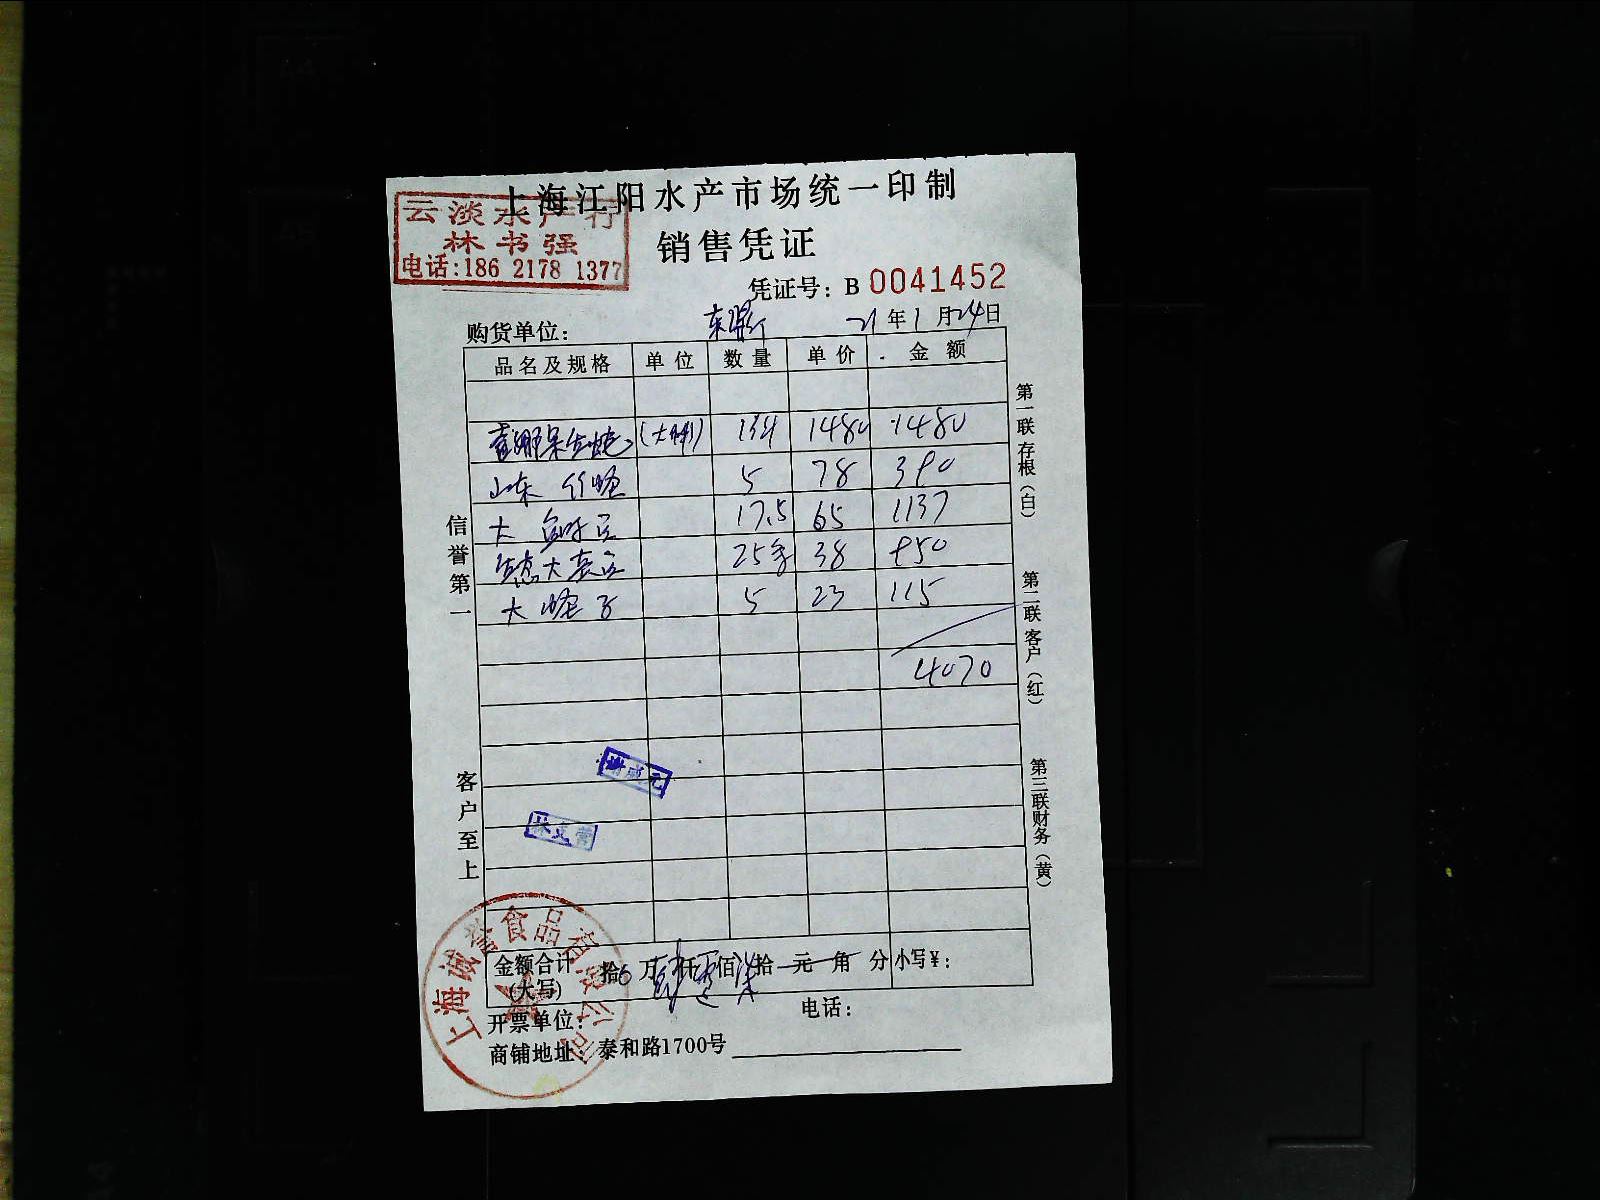 上海江阳水产市场统一印制
云淡水产行
林书强
电话:186 2178 1377
销售凭证
凭证号: B 0041452
购货单位: 21 年 1 月 24 日
品名及规格 单位 数量 单价 金额
1480 1480
山东 5 78 390
大 17.5 65 1137
生态大 25 38 950
大 子 5 23 115
4070
信誉第一
客户至上
第一联存根(白)
第二联客户(红)
第三联财务(黄)
金额合计(大写) 拾 万 仟 佰 拾 元 角 分 小写¥:
开票单位: 电话:
商铺地址: 泰和路1700号
上海诚誉食品有限公司